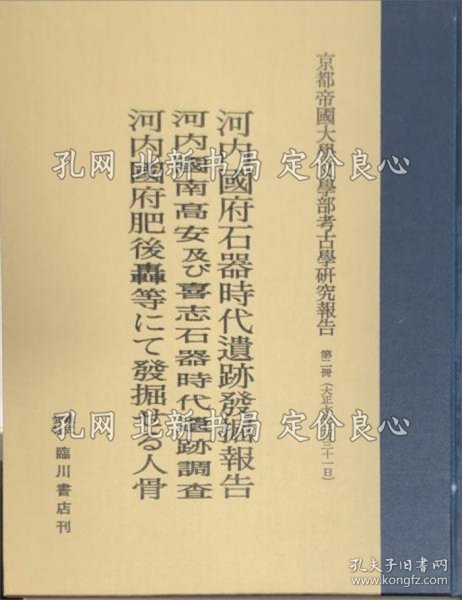 京都帝國大學文學部考古學研究報告 第二冊(大正 三十一日)
河内國府石器時代遺跡發掘報告
河内國南高安及び喜志石器時代遺跡調査
河内國府肥後轟等にて發掘せる人骨
臨川書店刊
孔网 北新书局 定价良心
孔网 北新书局 定价良心
孔网 北新书局 定价良心
孔夫子旧书网
www.kongfz.com